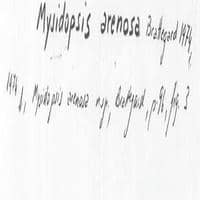 Mysidopsis arenosa Brattegard 1974,
1974 d, Mysidopsis arenosa n.sp., Brattegard, p. 91, fig. 3